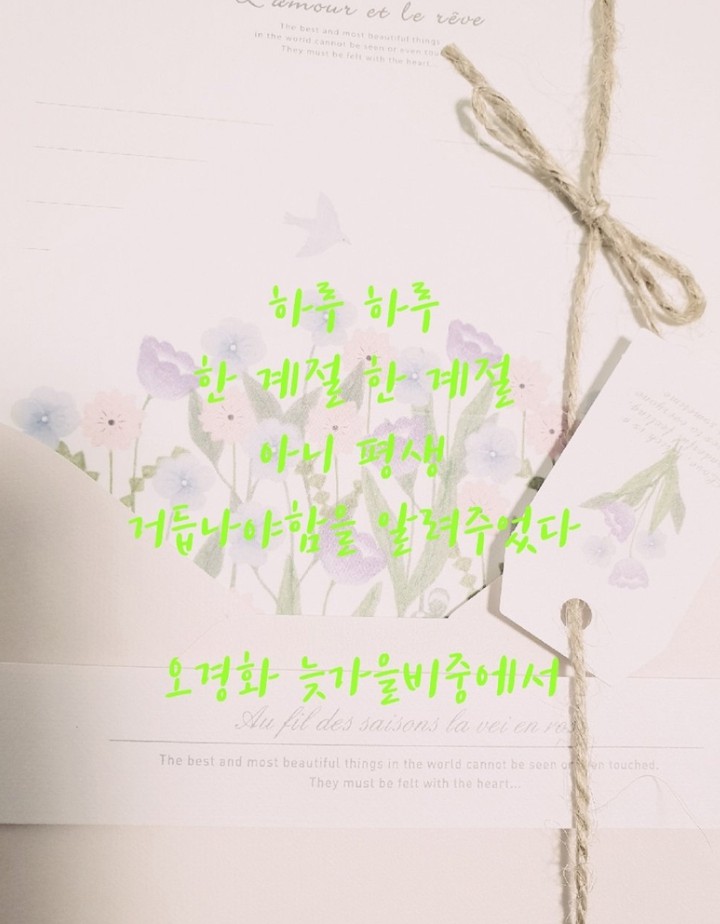 L'amour et le rêve
The best and most beautiful things
in the world cannot be seen or even tou
They must be felt with the heart...
하루 하루
한 계절 한 계절
아니 평생
거듭나야함을 알려주었다
오경화 늦가을비중에서
Au fil des saisons la vei en ros
The best and most beautiful things in the world cannot be seen or even touched.
They must be felt with the heart...